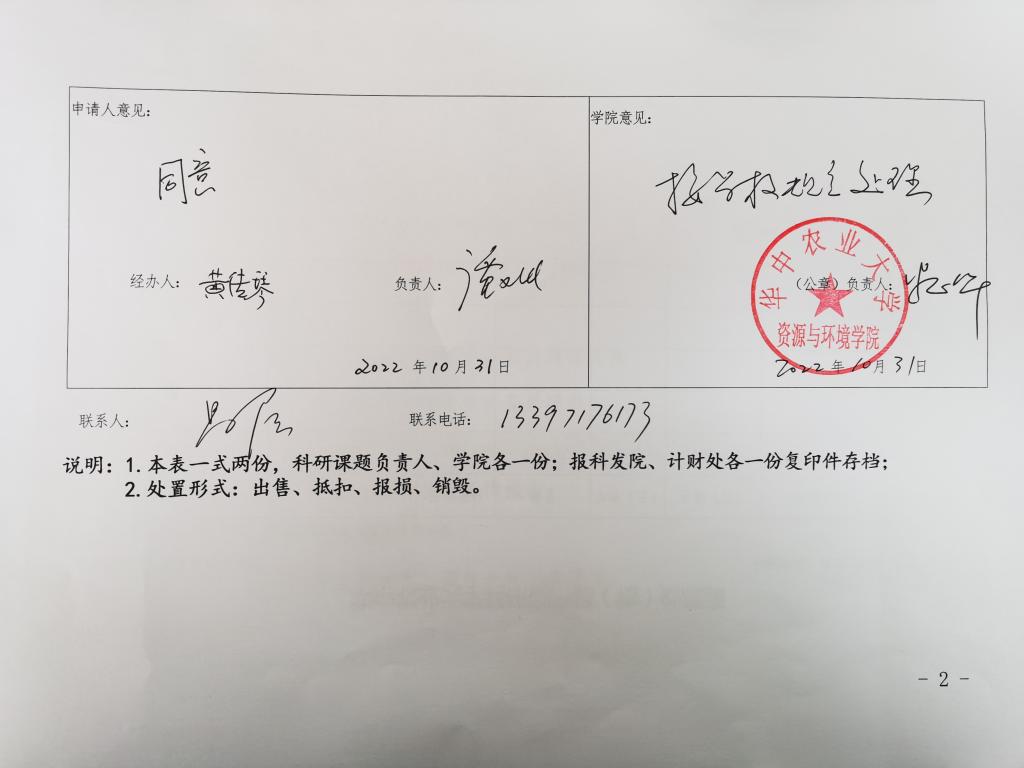 申请人意见：
同意
经办人： 黄佳琴 负责人：
2022 年 10 月 31 日
学院意见：
按学校规定处理
华中农业大学
（公章）负责人：
资源与环境学院
2022 年 10 月 31 日
联系人： 联系电话： 13397176173
说明：1.本表一式两份，科研课题负责人、学院各一份；报科发院、计财处各一份复印件存档；
2.处置形式：出售、抵扣、报损、销毁。
- 2 -